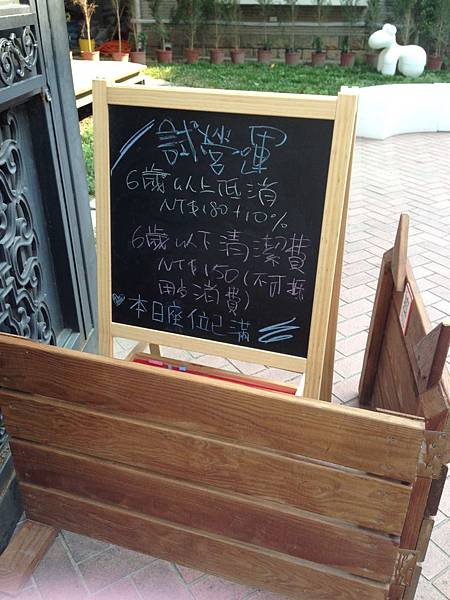 試營運
6歲以上低消
NT$180+10%
6歲以下清潔費
NT$150(不可抵
用消費)
本日座位已滿